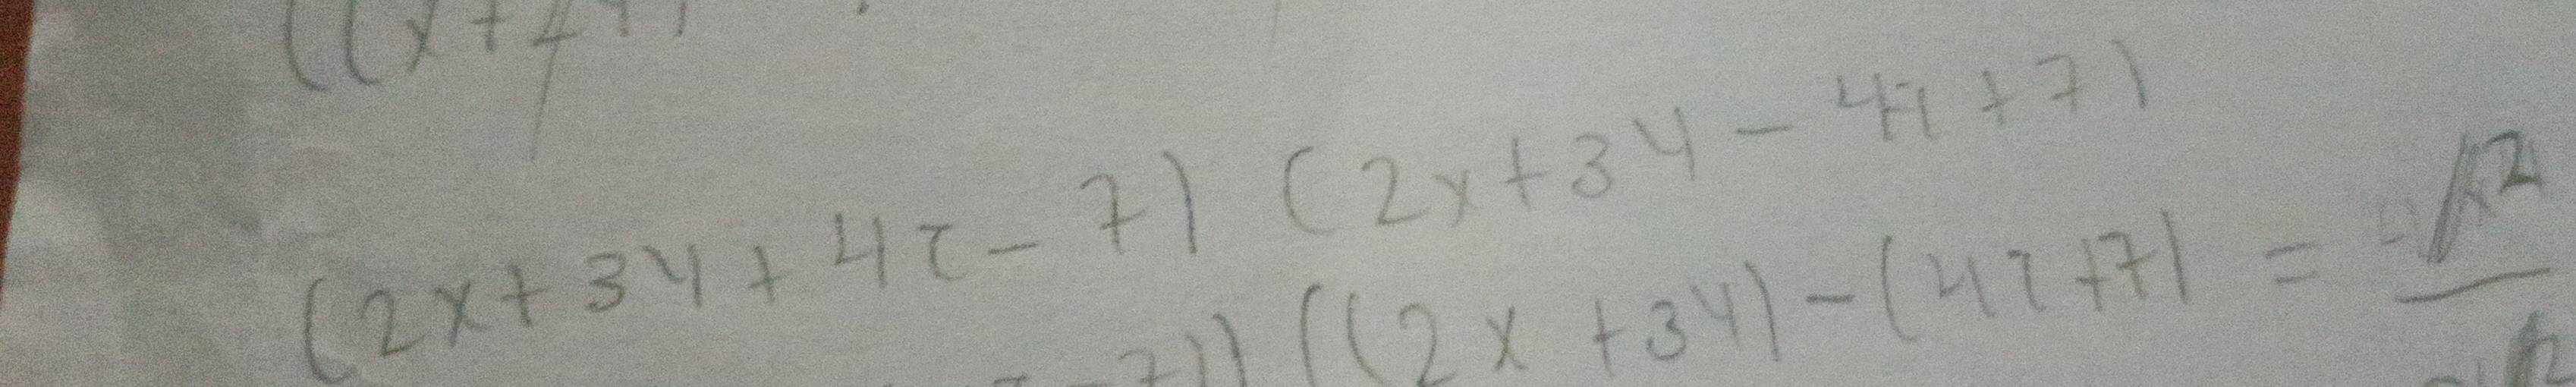 ((x+y
(2x+3y+4z-7) (2x+3y-4z+7)
-7)) ((2x+3y)-(4z+7) =